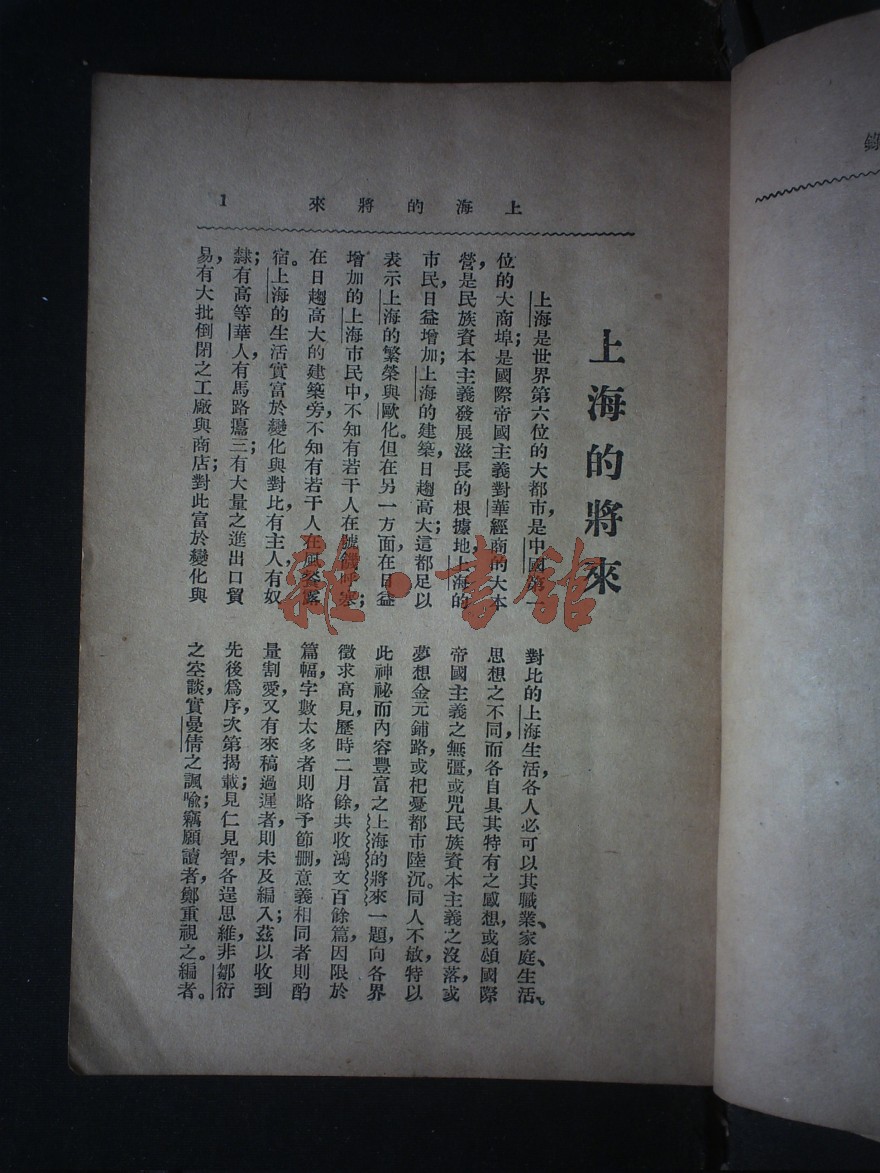 上海的將來
1
上海的將來
上海是世界第六位的大都市，是中國第一
位的大商埠；是國際帝國主義對華經商的大本
營，是民族資本主義發展滋長的根據地，上海的
市民，日益增加；上海的建築，日趨高大；這都足以
表示上海的繁榮與歐化。但在另一方面，在日益
增加的上海市民中，不知有若干人在號饑呼寒；
在日趨高大的建築旁，不知有若干人在風餐露
宿。上海的生活實富於變化與對比，有主人有奴
隸；有高等華人，有馬路癟三；有大量之進出口貿
易，有大批倒閉之工廠與商店；對此富於變化與
對比的上海生活，各人必可以其職業、家庭、生活、
思想之不同，而各自具其特有之感想，或頌國際
帝國主義之無彊，或咒民族資本主義之沒落，或
夢想金元鋪路，或杞憂都市陸沉。同人不敏，特以
此神祕而內容豐富之上海的將來一題，向各界
徵求高見，歷時二月餘，共收鴻文百餘篇，因限於
篇幅，字數太多者則略予節刪，意義相同者則酌
量割愛，又有來稿過遲者，則未及編入；茲以收到
先後爲序，次第揭載；見仁見智，各逞思維，非鄒衍
之空談，實曼倩之諷喩；竊願讀者，鄭重視之。編者。
雜·書館